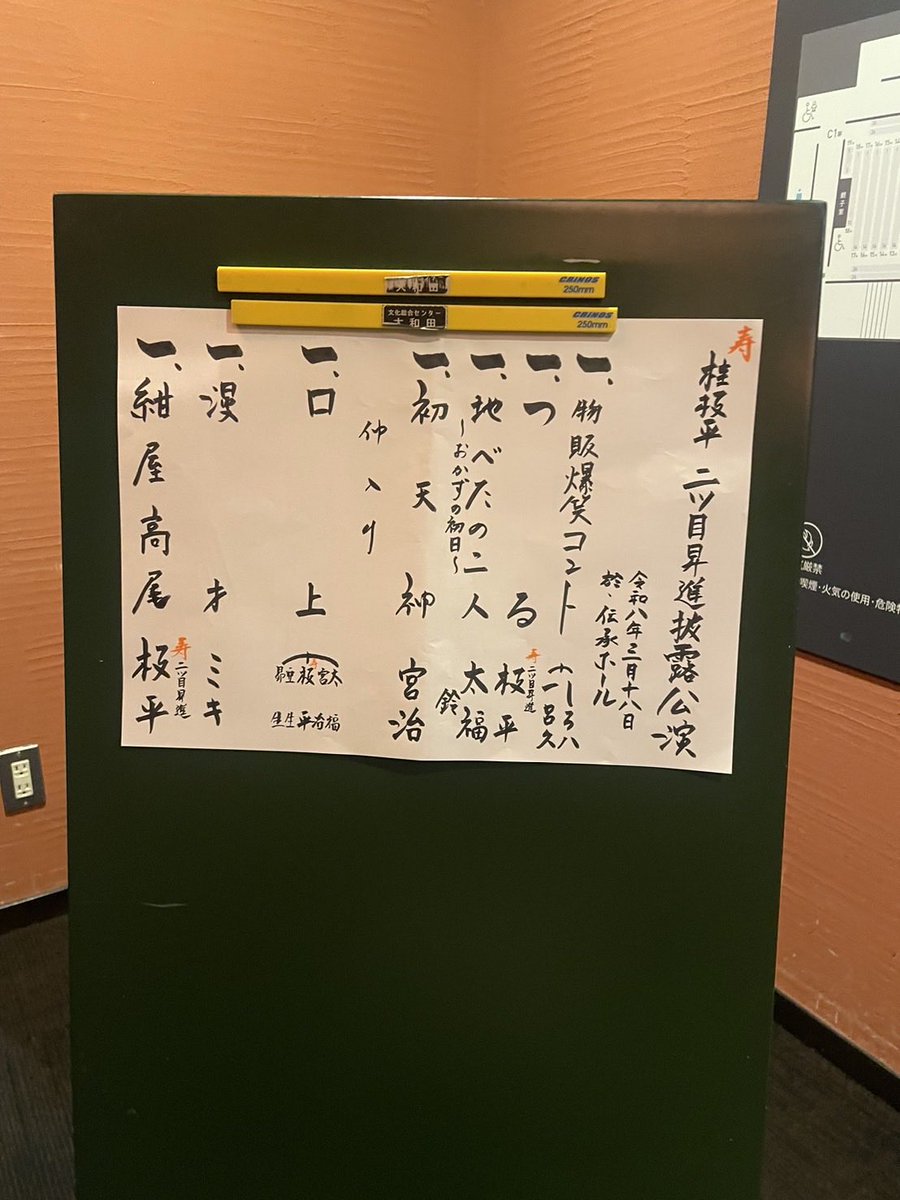 寿
桂枝平 二ツ目昇進披露公演
令和八年三月十八日
於・伝承ホール
一、物販爆笑コント
一、つる 寿 二ツ目昇進 枝平
一、地べたの二人 鈴 太福
～おかずの初日～
一、初天神 宮治
仲入り
一、口上
太福
宮治
寿
枝平
一、漫才 ミキ
一、紺屋高尾 寿 二ツ目昇進 枝平
大和田
CRINOS
250mm
文化総合センター
大和田
CRINOS
250mm
C1
親子室
厳禁
喫煙・火気の使用・危険